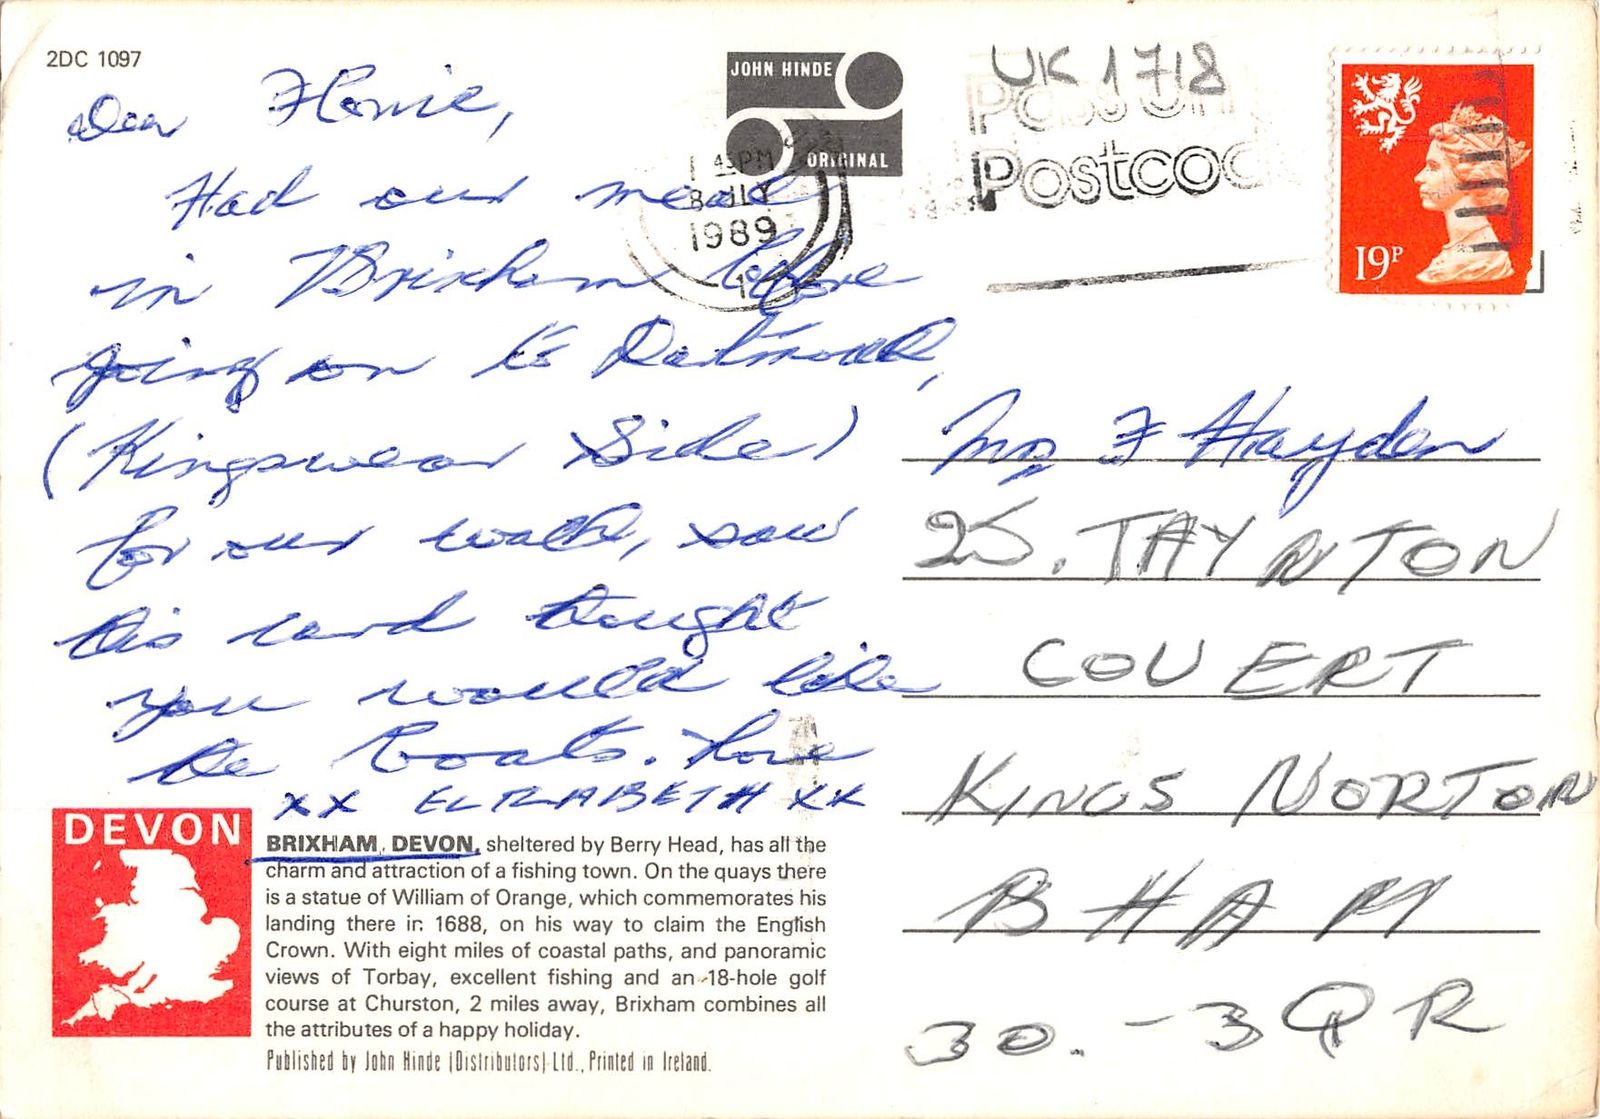 2DC 1097
JOHN HINDE
ORIGINAL
UK 1718
Pass on
Postcod
1 45PM
8 JLY
1989
19P
Dear Florrie,
Had our meal
in Brixham before
going on to Dartmouth,
(Kingswear Side)
for our walk, saw
this card thought
you would like
the boats. Love
XX ELIZABETH XX
Mrs F Hayden
25. TAYNTON
COVERT
KINGS NORTON
BHAM
30. - 3QR
DEVON
BRIXHAM, DEVON, sheltered by Berry Head, has all the
charm and attraction of a fishing town. On the quays there
is a statue of William of Orange, which commemorates his
landing there in 1688, on his way to claim the English
Crown. With eight miles of coastal paths, and panoramic
views of Torbay, excellent fishing and an 18-hole golf
course at Churston, 2 miles away, Brixham combines all
the attributes of a happy holiday.
Published by John Hinde (Distributors) Ltd., Printed in Ireland.